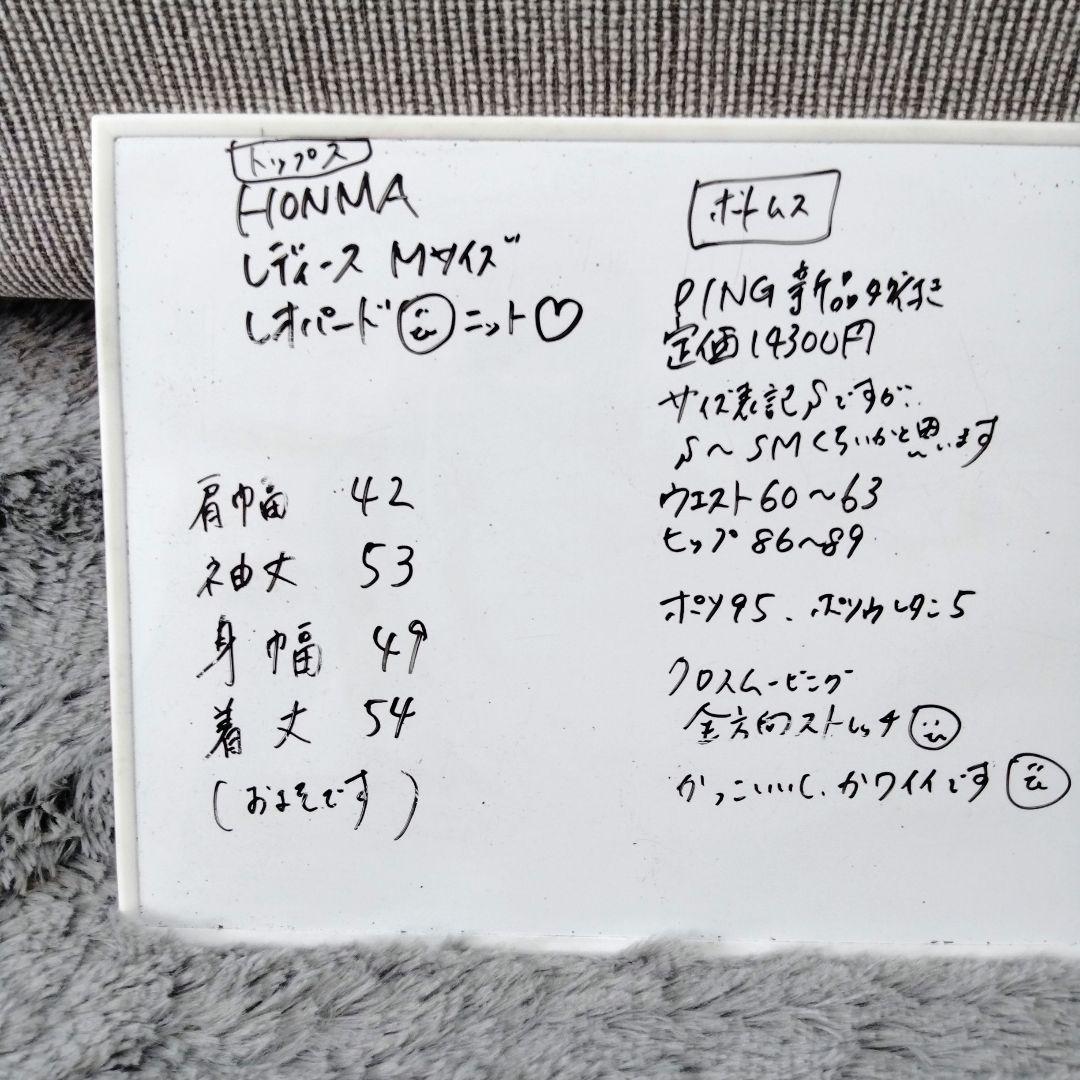 トップス
HONMA
レディース Mサイズ
レオパード ニット♡
肩幅 42
袖丈 53
身幅 49
着丈 54
(およそです)
ボトムス
PING 新品タグ付き
定価14300円
サイズ表記Sですが、
S〜SMくらいかと思います
ウエスト60〜63
ヒップ86〜89
ポリ95、ポリウレタン5
クロスムービング
全方向ストレッチ
かっこいいし、カワイイです